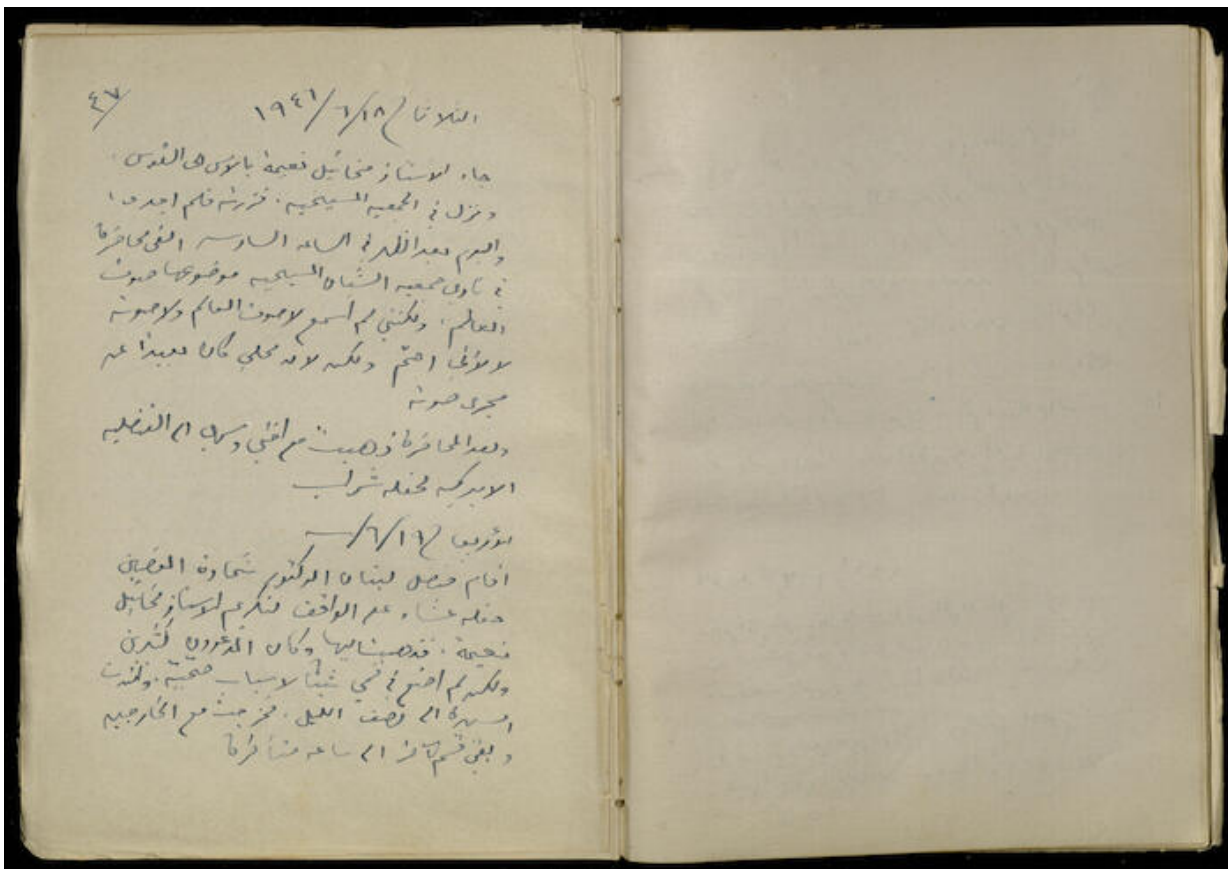 ٤٧/
الثلاثاء ١٨/٦/١٩٤٦
جاء الاستاذ مخائيل نعيمة بالامس الى القدس.
ونزل في الجمعيه المسيحيه. فزرته فلم اجده.
واليوم بعد الظهر في الساعه السادسه القى محاضرة
في نادي جمعيه الشبان المسيحيه موضوعها صوت
العالم. ولكنني لم أسمع لا صوت العالم ولا صوته
لا لأني اصم ولكن لان محلي كان بعيدا عن
مجرى صوته
وبعد المحاضرة ذهبت مع اختي الى القنصليه
الاميركيه لحفله شراب
١٩/٦/
اقام قنصل لبنان الدكتور شحادة الغصين
حفله عشاء على الواقف لتكريم الاستاذ مخائيل
نعيمة. فذهبنا اليها وكان المدعوون كثيرين
ولكن لم اضع في فمي شيئا لاسباب صحيّة.
السهرة الى نصف الليل. فخرجت مع الخارجين
وبقي قسم آخر الى ساعه متأخرة